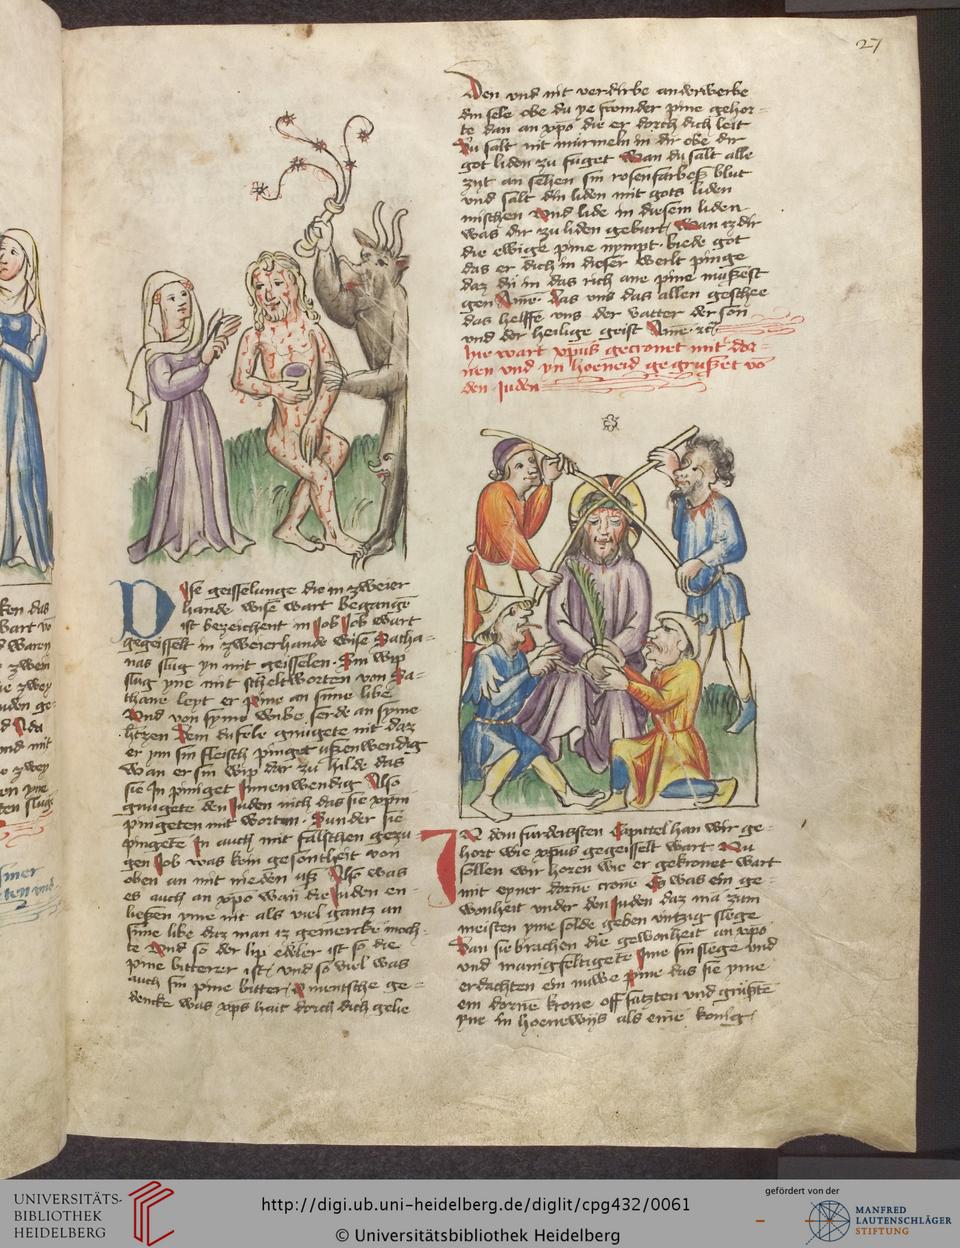 27
Dise geisselunge die in zweier
hande wise wart begangē
ist bezeichent in Job Job wart
gegeisselt in zweierhande wise Satha=
nas slug yn mit geisselen. Ein wip
slug yne mit scheltworten von Sa=
thane leyt er pine an sime libe
Und von syme wibe serde an syme
htzen Dem dufele gnugete nit daz
er ym sin fleisch pinget ußenwendig
Wan er sin wip dar zu hilde das
sie In piniget Innenwendig Also
gnugete den Juden nich das sie xpm
pingeten mit worten. Sunder sie
pingete In auch mit falschen gezu=
gen Job was kein gesontheit von
oben an mit nieden uß Also was
es auch an xpo wan die Juden en=
ließen yme nit als viel gantz an
sime libe daz man iz gemercke moch=
te Und so der lip edeler ist so die
pine bitterer ist. und so viel was
auch sin pine bitter. O mentsche ge=
dencke was xps hait dorch dich gelie
den und nit verdirbe anderwerbe
din sele obe du ye fromder pine gehor=
te dan an xpo die er dorch dich leit
Du salt nit murmeln in dir obe dir
got liden zu fuget Wan du salt alle
zyt an sehen sin rosenfarbeß blut
und salt din liden mit gots liden
mischen Und lide in diesem liden
was dir zu liden geburt. Wan iz dir
die ewige pine nympt. biede got
das er dich in dieser werlt pinge
daz du in das rich ane pine mußest
gen Ame. Das uns das allen geschee
das helffe uns der vatter der son
und der heilige geist Ame. zc
Hie wart xpus gecronet mit dor=
nen und yn hoeneid gegrußet vō
den Juden
IN dem furdersten Capittel han wir ge=
hort wie xpus gegeisselt wart Nu
sollen wir horen wie er gekronet wart
mit eyner dorne crone Es was ein ge=
wonheit under den Juden daz ma zum
meisten yme solde geben viertzig slege
Dan sie brachen die gewonheit an xpo
und manigfeltigete Ime sin slege und
erdachten ein nuwe pine das sie yme
ein dorne krone off satzten und grußtē
yne in hoenewijs als eine konig.
UNIVERSITÄTS-
BIBLIOTHEK
HEIDELBERG
http://digi.ub.uni-heidelberg.de/diglit/cpg432/0061
© Universitätsbibliothek Heidelberg
gefördert von der
MANFRED
LAUTENSCHLÄGER
STIFTUNG